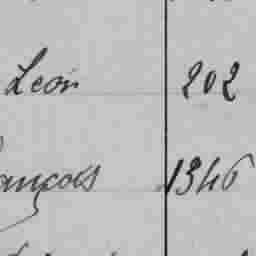 Léon 202
ançois 1346